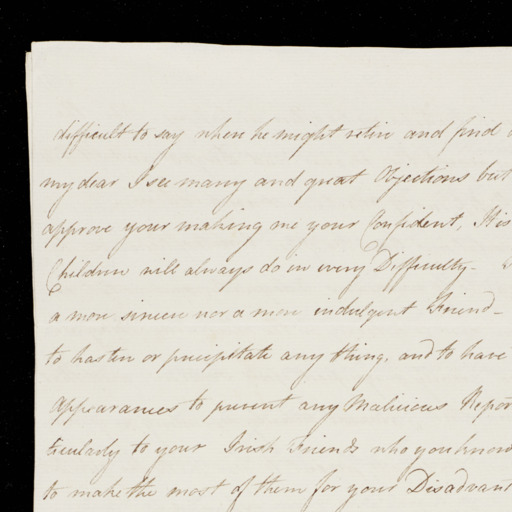 difficult to say when he might retire and find
my dear I see many and great Objections but
approve your making me your Confident, It is
Children will always do in every Difficulty -
a more sincere nor a more indulgent Friend -
to hasten or precipitate any thing, and to have
Appearances to prevent any Malicious Repor
ticularly to your Irish Friends who you know
to make the most of them for your Disadvant